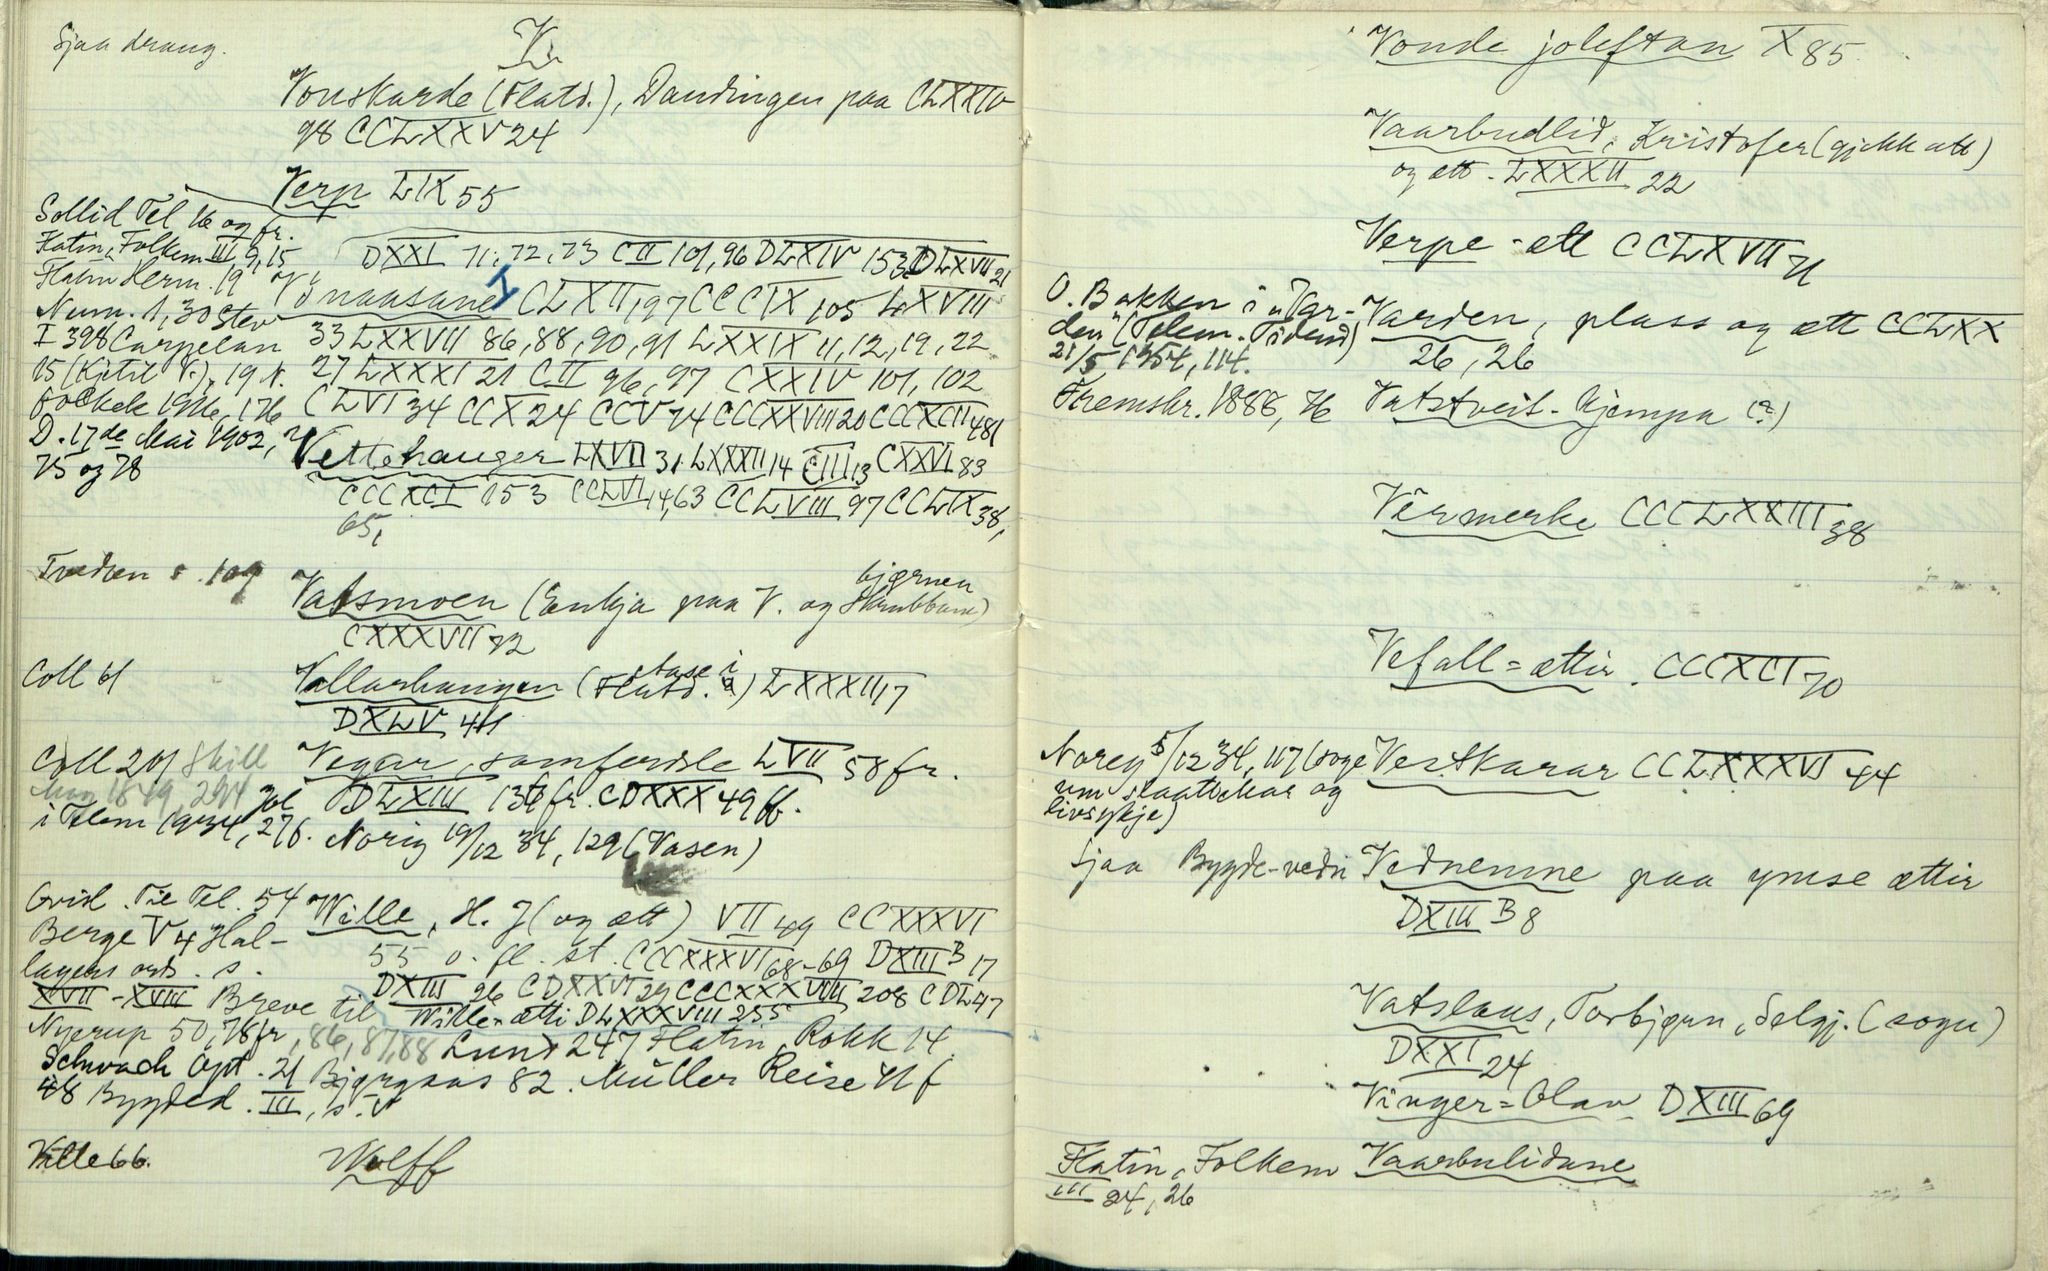 Sjaa draug.
V.
Vonskarde (Flatd.), Daudingen paa CLXXIV
98 CCLXXV 24
Verp LIX 55
Sollid Tel 16 og fr.
Flatin, Folkem III 9, 15
DXXI 71, 72, 73 CII 101, 96 DLXIV 153 DLXVII 21
Flatin Herm. 19
CLXII, 97 CCCIX 105 LXVIII
Num. 1, 30 Stev
I 398 Carpelan
33 LXXVII 86, 88, 90, 91 LXXIX 11, 12, 19, 22
15 (Kjetil V.), 19 N.
27 LXXXI 21 CII 96, 97 CXXIV 101, 102
1926, 176
CLVI 34 CCX 24 CCV 74 CCCXXVIII 20 CCCXCII 481
D. 17de Mai 1902,
75 og 78
Vettehauger LXVII 31 LXXXII 14 CIII 13 CXXVI 83
CCCXCI 153 CCLVI 14, 63 CCLVIII 97 CCLIX 38,
65,
s. 109
bjørnen
Vatsmoen (Enkja paa V. og Skrubban)
CXXXVII 72
Coll 61
Vallarhaugen (Flatd. ) LXXXII, 7
DXLV 41
Coll 201 Skill
Mag 1849, 294
Vegar, samferdsle LVII 58 fr.
Jol
DLXIII 136 fr. CDXXX 49 ff.
i Telem 1934, 27 f. Norig 19/12 34, 129 (Vasen)
Tie Tel. 54
Wille, H. J (og ætt) VII 49 CCXXXVI
Berge V 4 Hal-
lagers ords. s.
55 o. fl. st. CCCXXXVI 68-69 DXIII B 17
XVII-XVIII Breve til
DXIII 26 CDXXVI 29 CCCXXXVIII 208 CDL 47
Wille-ætti DLXXXVIII 255
Nyerup 50, 78 fr, 86, 87, 88 Lund 247 Flatin, Rokk 14
Schwach Opt. 21 Bjørgaas 82. Müller Reise 41 f
48 Bygded. III, s. V
Wille 66.
Wolff
Vonde joleftan X 85.
Vaarbudlid, Kristofer (gjekk att)
og ætt - LXXXII 22
Verpe-ætt CCLXVII 71
O. Bakken i "Var-
den" (Telem. Tidend)
21/5 1954, 114.
Varden, plass og ætt CCLXX
26, 26
Fremskr. 1888, 76 Vatstveit-Kjempa (?)
Vêrmerke CCCLXXIII 38
Vefall-ættir. CCCXCI 70
Noreg 5/12 34, 117 (soge
um slaattekar og
livsykje)
Vestkarar CCLXXXVI 44
Sjaa Bygde-vedn
Vednemne paa ymse ættir
DXIII B 8
Vatslaus, Torbjørn, Selgj. (sogn)
DXXI 24
Vinger-Olav DXIII 69
Flatin, Folkem
III 24, 26
Vaarbulidane